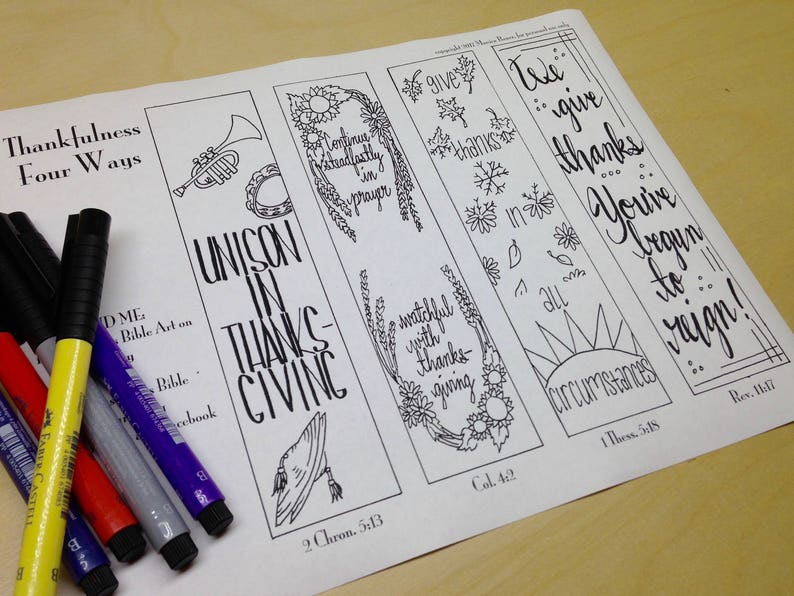 copyright 2017 Monica Renee, for personal use only
Thankfulness
Four Ways
UNISON
IN
THANKS-
GIVING
2 Chron. 5:13
Continue
steadfastly
in
prayer
watchful
with
thanks-
giving
Col. 4:2
give
thanks
in
all
circumstances
1 Thess. 5:18
We
give
thanks
You've
begun
to
reign!
Rev. 11:17
ME:
Bible Art on
Bible
Facebook
FABER-CASTELL
B
B
B
B